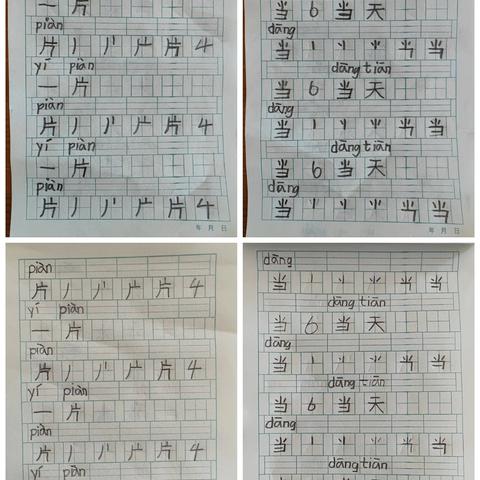 一 片
piàn
片 丿 片 4
yí piàn
一 片
piàn
片 丿 片 4
yí piàn
一 片
piàn
片 丿 片 4
年 月 日
当 6 当 天
dāng
当 丨 ⺌ 当
dāng tiān
当 6 当 天
dāng
当 丨 ⺌ 当
dāng tiān
当 6 当 天
dāng
当 丨 ⺌ 当
年 月 日
piàn
片 丿 片 4
yí piàn
一 片
piàn
片 丿 片 4
yí piàn
一 片
piàn
片 丿 片 4
yí piàn
dāng
当 丨 ⺌ 当
dāng tiān
当 6 当 天
dāng
当 丨 ⺌ 当
dāng tiān
当 6 当 天
dāng
当 丨 ⺌ 当
dāng tiān